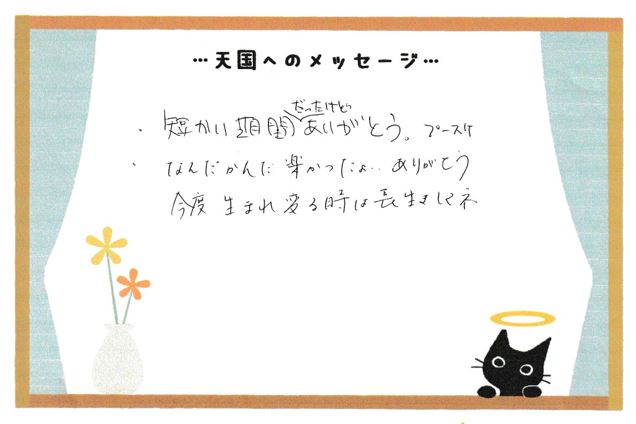 …天国へのメッセージ…
だったけど
・短かい期間ありがとう。プースケ
・なんだかんだ楽かったよ‥ありがとう
今度生まれ変る時は長生きしてネ